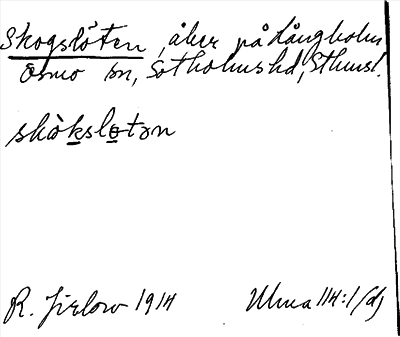 Skogslöten, åker på Långholm
Ösmo sn, Sotholms hd, Sthmsl.
skòksløtən
R. Jirlow 1914 Ulma 114:1/dj